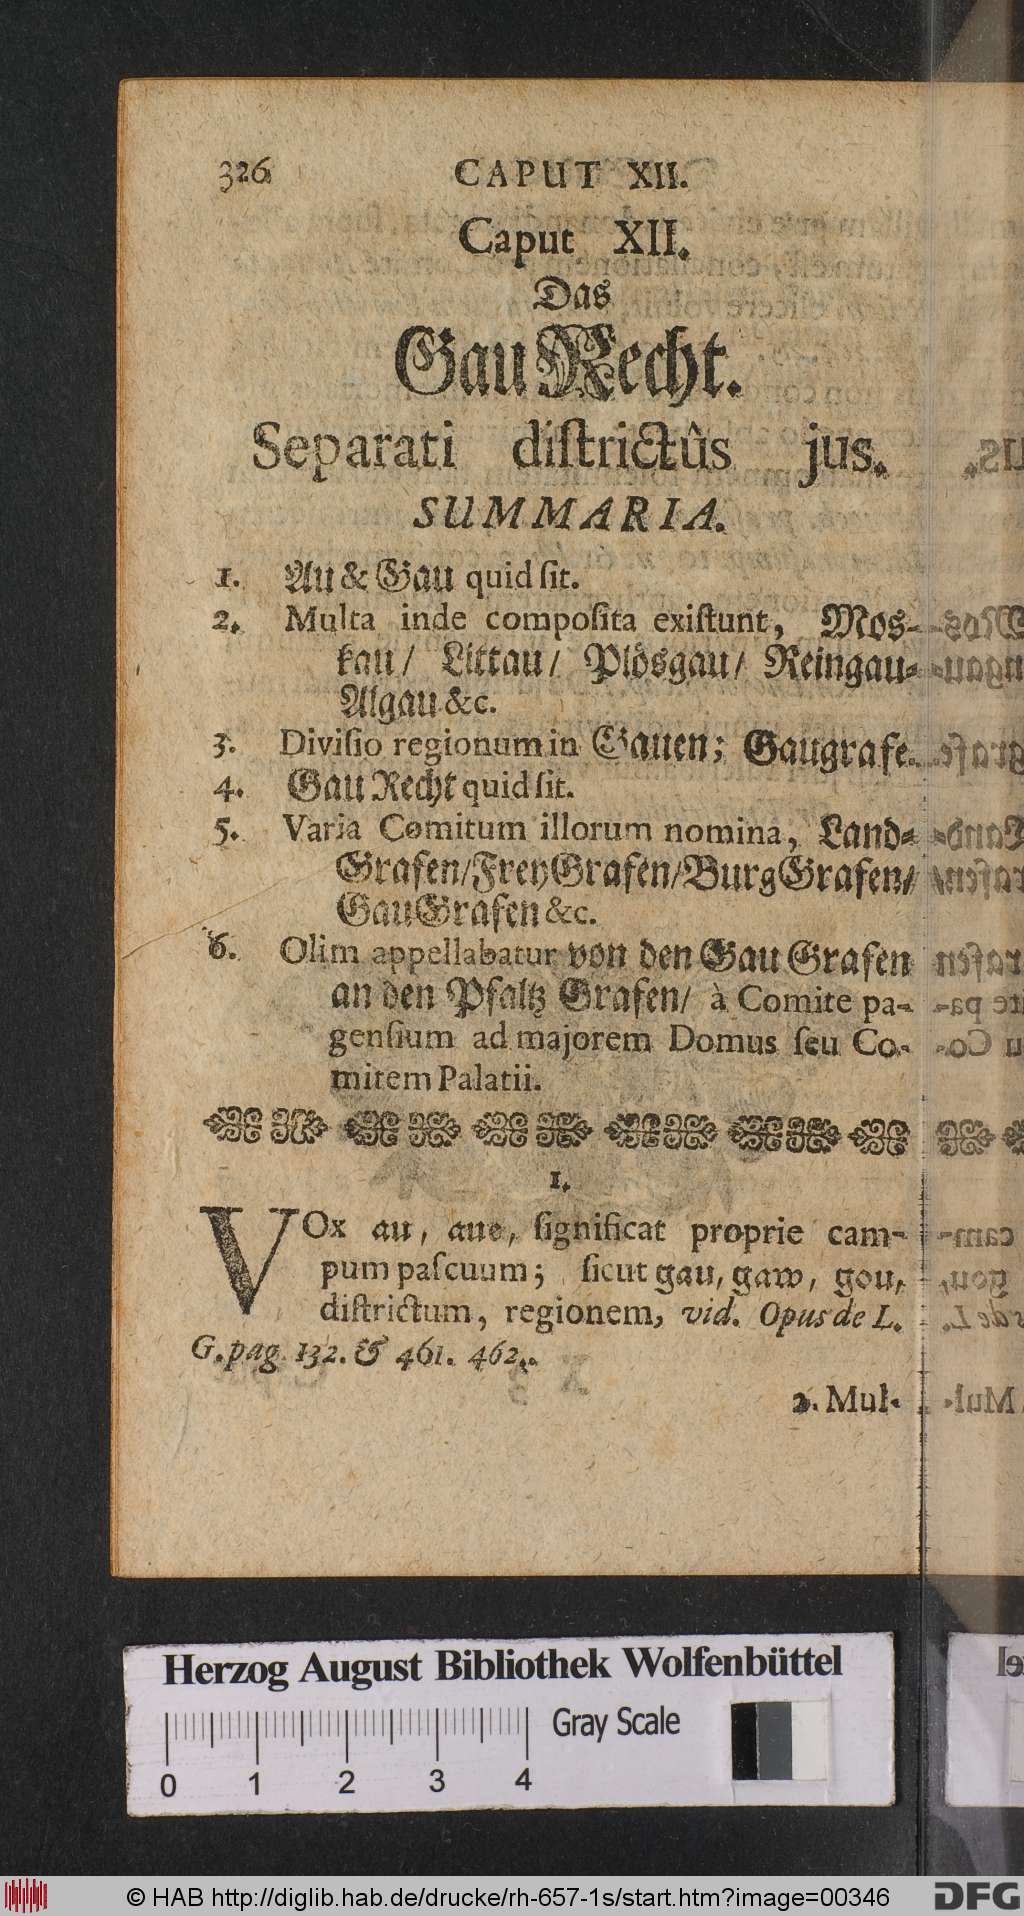 326 CAPUT XII.
Caput XII.
Das
Gau Recht.
Separati diſtrictûs jus.
SUMMARIA.
1. Au & Gau quid ſit.
2. Multa inde compoſita exiſtunt, Mos-
kau/ Littau/ Plösgau/ Reingau-
Algau &c.
3. Diviſio regionum in Gauen; Gaugrafe.
4. Gau Recht quid ſit.
5. Varia Comitum illorum nomina, Land-
Grafen/ Frey Grafen/ Burg Grafen/
Gau Grafen &c.
6. Olim appellabatur von den Gau Grafen
an den Pfaltz Grafen/ à Comite pa-
genſium ad majorem Domus ſeu Co-
mitem Palatii.
1.
VOx au, aue, ſignificat proprie cam-
pum paſcuum; ſicut gau, gaw, gou,
diſtrictum, regionem, vid. Opus de L.
G. pag. 132. & 461. 462.
2. Mul-
Herzog August Bibliothek Wolfenbüttel
Gray Scale
0 1 2 3 4
© HAB http://diglib.hab.de/drucke/rh-657-1s/start.htm?image=00346 DFG